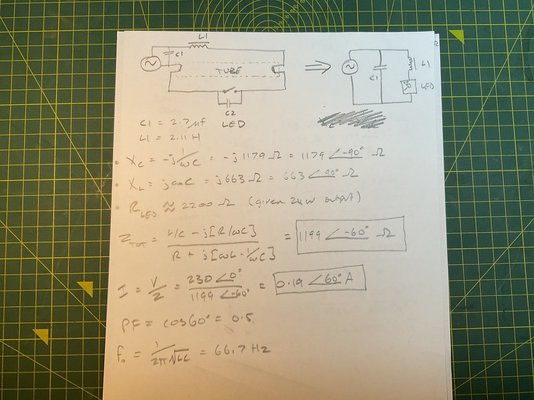 L1
C1
TUBE
C2
LED
C1
L1
LED
C1 = 2.7μf
L1 = 2.11 H
• Xc = -j 1/ωC = -j 1179 Ω = 1179 ∠-90° Ω
• XL = jωC = j663 Ω = 663 ∠90° Ω
• RLED ≈ 2200 Ω (given 24W output)
ZTOT = L/C - j[R/ωC] / R + j[ωL - 1/ωC] = 1199 ∠-60° Ω
I = V/Z = 230∠0° / 1199∠-60° = 0.19 ∠60° A
PF = cos60° = 0.5
f₀ = 1/2π√LC = 66.7 Hz